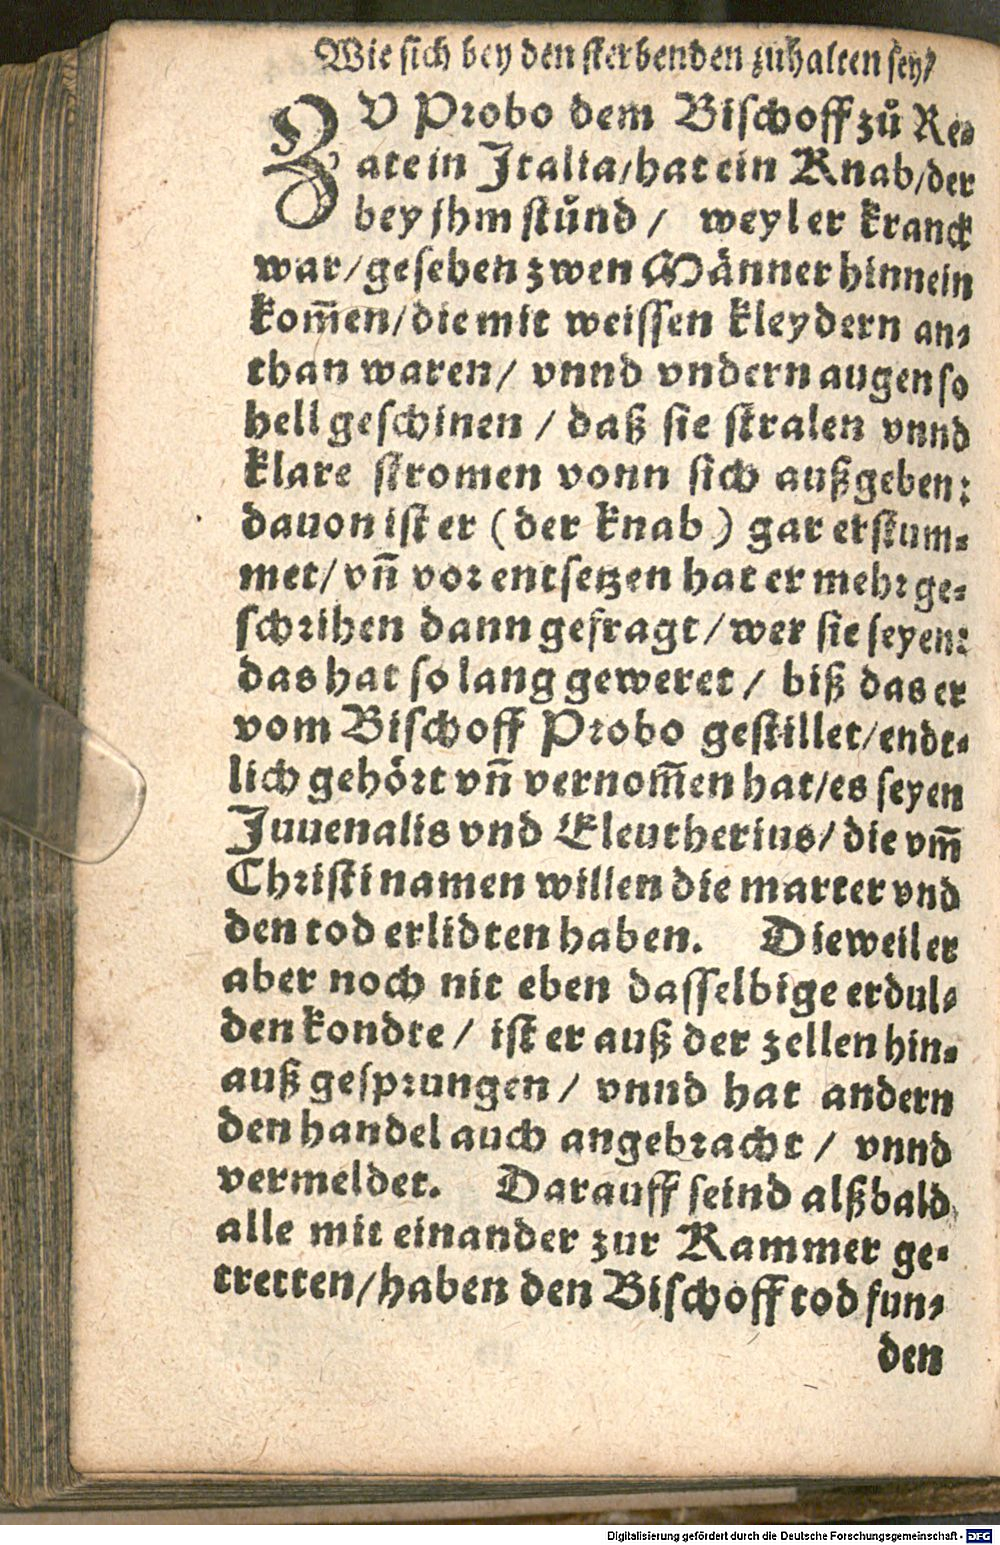 Wie sich bey den sterbenden zuhalten sey/
ZV Probo dem Bischoff zů Re⸗
ate in Italia/hat ein Knab/der
bey jhm stůnd / weyl er kranck
war/gesehen zwen Männer hinnein
kom̃en/die mit weissen kleydern an⸗
than waren/ vnnd vndern augen so
hell geschinen / daß sie stralen vnnd
klare stromen vonn sich außgeben:
dauon ist er (der knab) gar erstum⸗
met/vñ vor entsetzen hat er mehr ge⸗
schrihen dann gefragt/wer sie seyen:
das hat so lang geweret / biß das er
vom Bischoff Probo gestillet/endt⸗
lich gehört vñ vernom̃en hat/es seyen
Juuenalis vnd Eleutherius/die vm̃
Christi namen willen die marter vnd
den tod erlidten haben. Dieweil er
aber noch nit eben dasselbige erdul⸗
den kondte / ist er auß der zellen hin⸗
auß gesprungen / vnnd hat andern
den handel auch angebracht / vnnd
vermeldet. Darauff seind alßbald
alle mit einander zur Kammer ge⸗
tretten/haben den Bischoff tod fun⸗
den
Digitalisierung gefördert durch die Deutsche Forschungsgemeinschaft - DFG